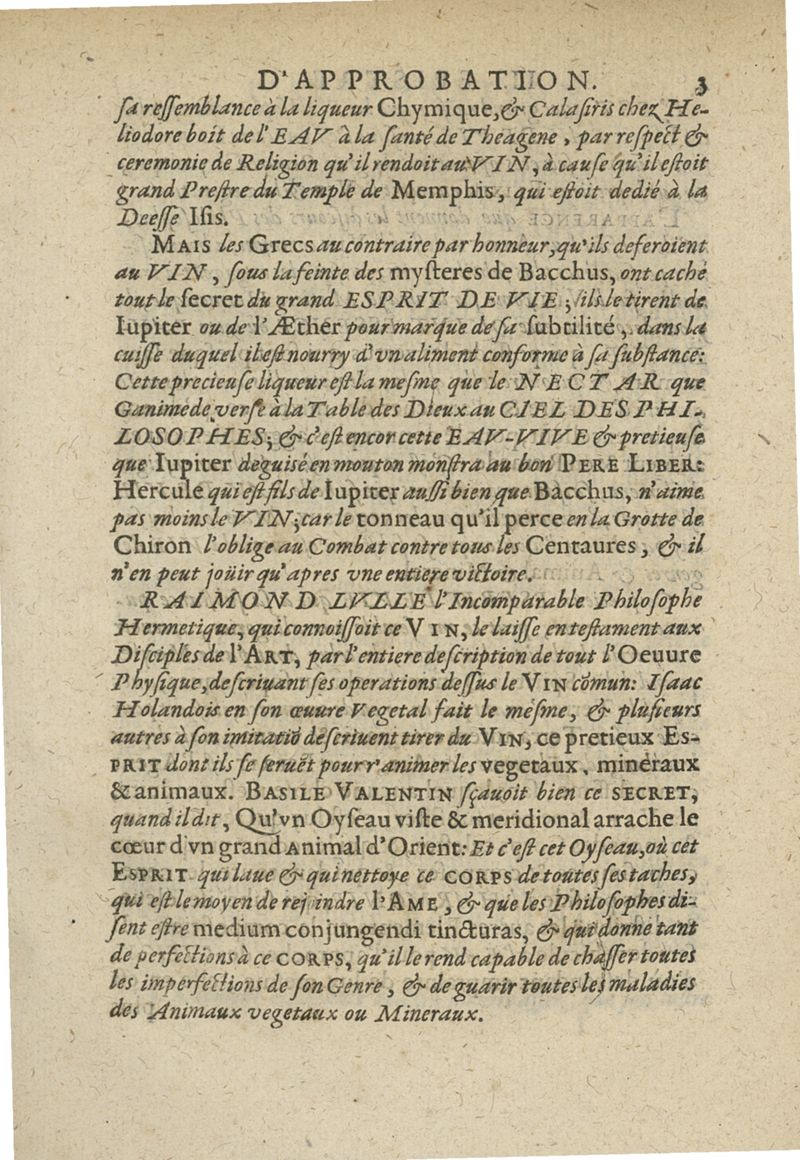 D'APPROBATION. 3
ſa reſſemblance à la liqueur Chymique, & Calaſiris chez He-
liodore boit de l'EAV à la ſanté de Theagene, par reſpect &
ceremonie de Religion qu'il rendoit au VIN, à cauſe qu'il eſtoit
grand Preſtre du Temple de Memphis, qui eſtoit dedié à la
Deeſſe Iſis.
MAIS les Grecs au contraire par honneur, qu'ils deferoient
au VIN, ſous la feinte des myſteres de Bacchus, ont caché
tout le ſecret du grand ESPRIT DE VIE; ils le tirent de
Iupiter ou de l'Æther pour marque de ſa ſubtilité, dans la
cuiſſe duquel il eſt nourry d'vn aliment conforme à ſa ſubſtance:
Cette precieuſe liqueur eſt la meſme que le NECTAR que
Ganimede verſe à la Table des Dieux au CIEL DES PHI-
LOSOPHES; & c'eſt encor cette EAV-VIVE & pretieuſe
que Iupiter deguisé en mouton monſtra au bon PERE LIBER:
Hercule qui eſt fils de Iupiter auſſi bien que Bacchus, n'aime
pas moins le VIN; car le tonneau qu'il perce en la Grotte de
Chiron l'oblige au Combat contre tous les Centaures, & il
n'en peut joüir qu'apres vne entiere victoire.
RAIMOND LVLLE l'Incomparable Philoſophe
Hermetique, qui connoiſſoit ce VIN, le laiſſe en teſtament aux
Diſciples de l'ART, par l'entiere deſcription de tout l'Oeuure
Phyſique, deſcriuant ſes operations deſſus le VIN cõmun: Iſaac
Holandois en ſon œuure Vegetal fait le meſme, & pluſieurs
autres à ſon imitatiõ deſcriuent tirer du VIN, ce pretieux ES-
PRIT dont ils ſe ſeruẽt pour r'animer les vegetaux, mineraux
& animaux. BASILE VALENTIN ſçauoit bien ce SECRET,
quand il dit, Qu'vn Oyſeau viſte & meridional arrache le
cœur d'vn grand Animal d'Orient: Et c'eſt cet Oyſeau, où cet
ESPRIT qui laue & qui nettoye ce CORPS de toutes ſes taches,
qui eſt le moyen de rejoindre l'AME, & que les Philoſophes di-
ſent eſtre medium conjungendi tincturas, & qui donne tant
de perfections à ce CORPS, qu'il le rend capable de chaſſer toutes
les imperfections de ſon Genre, & de guarir toutes les maladies
des Animaux vegetaux ou Mineraux.